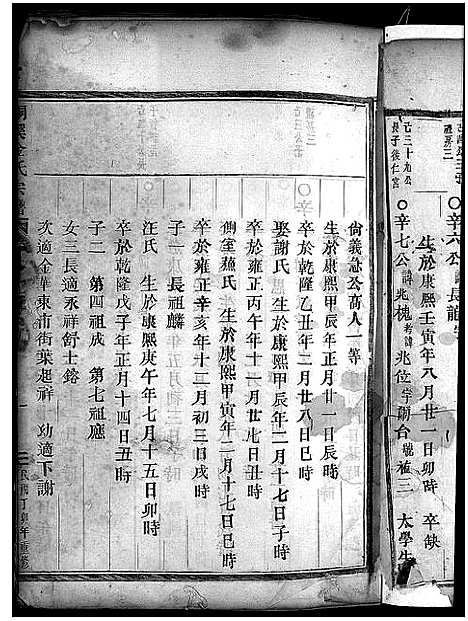 辛六公
長龍
生於康熙壬寅年八月廿一日卯時 卒缺
辛七公諱兆槐考諱兆位字朝台號福三 太學生
己三十九公
長子後仁宮
尚義急公高人一等
生於康熙甲辰年正月廿一日辰時
卒於乾隆乙丑年二月廿八日巳時
娶謝氏 生於康熙甲辰年二月十七日子時
卒於雍正丙午年十二月廿七日丑時
側室蕉氏 生於康熙甲寅年二月十七日巳時
卒於雍正辛亥年十二月初三日戌時
子一 長祖麟
汪氏 生於康熙庚午年七月十五日卯時
卒於乾隆戊子年正月十四日丑時
子二 第四祖成 第七祖應
女三長適永祥舒士鎔
次適金華東市街葉起祥 幼適下謝